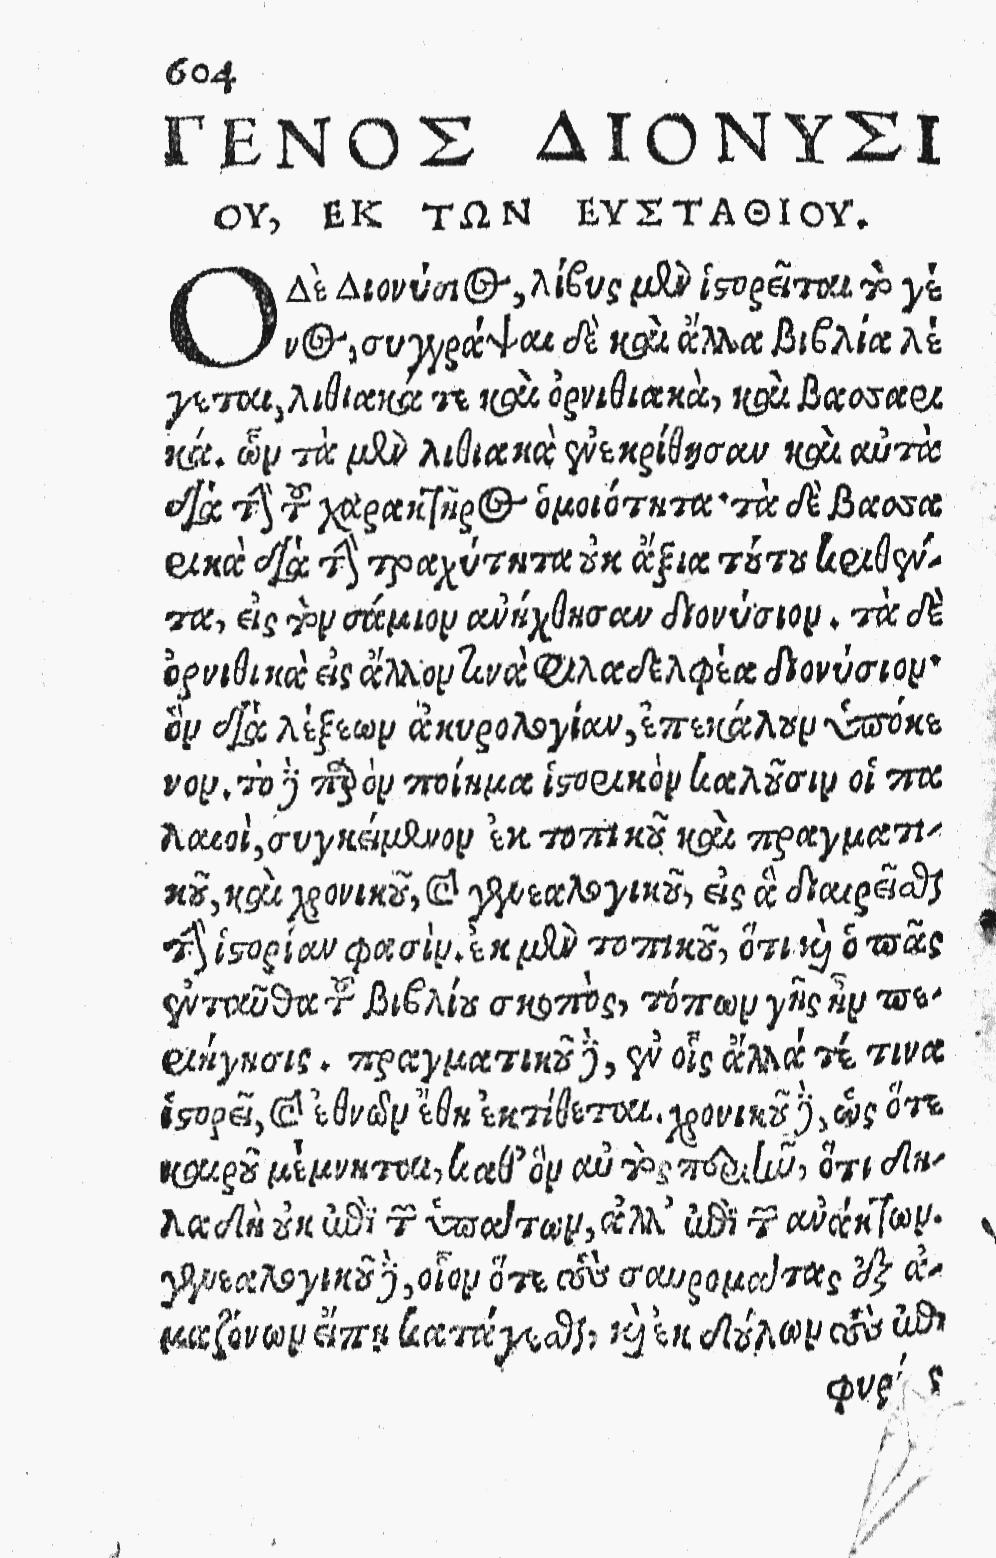 604
ΓΕΝΟΣ ΔΙΟΝΥΣΙ
ΟΥ, ΕΚ ΤΩΝ ΕΥΣΤΑΘΙΟΥ.
Ο Δὲ Διονύσιος, λίβυς μὲν ἱστορεῖται τὸ γέ
νος, συγγράψαι δὲ καὶ ἄλλα βιβλία λέ
γεται, λιθιακά τε καὶ ὀρνιθιακὰ, καὶ βασσαρι
κά. ὧν τὰ μὲν λιθιακὰ ἐνεκρίθησαν καὶ αὐτὰ
διὰ τὴν τοῦ χαρακτῆρος ὁμοιότητα· τὰ δὲ βασσα
ρικὰ διὰ τὴν τραχύτητα οὐκ ἄξια τούτου κριθέν-
τα, εἰς τὸν σάμιον ἀνήχθησαν διονύσιον. τὰ δὲ
ὀρνιθικὰ εἰς ἄλλον τινὰ φιλαδελφέα διονύσιον·
ὃν διὰ λέξεων ἀκυρολογίαν, ἐπεκάλουν ὑπόκε
νον. τὸ δὲ παρὸν ποίημα ἱστορικὸν καλοῦσιν οἱ πα
λαιοὶ, συγκείμενον ἐκ τοπικοῦ καὶ πραγματι-
κοῦ, καὶ χρονικοῦ, καὶ γενεαλογικοῦ, εἰς ἃ διαιρεῖσθαι
τὴν ἱστορίαν φασὶν. ἐκ μὲν τοπικοῦ, ὅτι καὶ ὁ πᾶς
ἐνταῦθα τοῦ βιβλίου σκοπὸς, τόπων γῆς ἦν πε-
ριήγησις. πραγματικοῦ δὲ, ἐν οἷς ἄλλά τέ τινα
ἱστορεῖ, καὶ ἐθνῶν ἔθη ἐκτίθεται. χρονικοῦ δὲ, ὡς ὅτε
καιροῦ μέμνηται, καθ' ὃν αὐτὸς παρῆν, ὅτι δη-
λαδὴ οὐκ ἐπὶ τῶν ὑπάτων, ἀλλ' ἐπὶ τῶν ἀνάκτων.
γενεαλογικοῦ δὲ, οἷον ὅτε τοὺς σαυρομάτας ἐξ ἀ-
μαζόνων εἴπῃ κατάγεσθαι, καὶ ἐκ δούλων τοὺς ἐπὶ